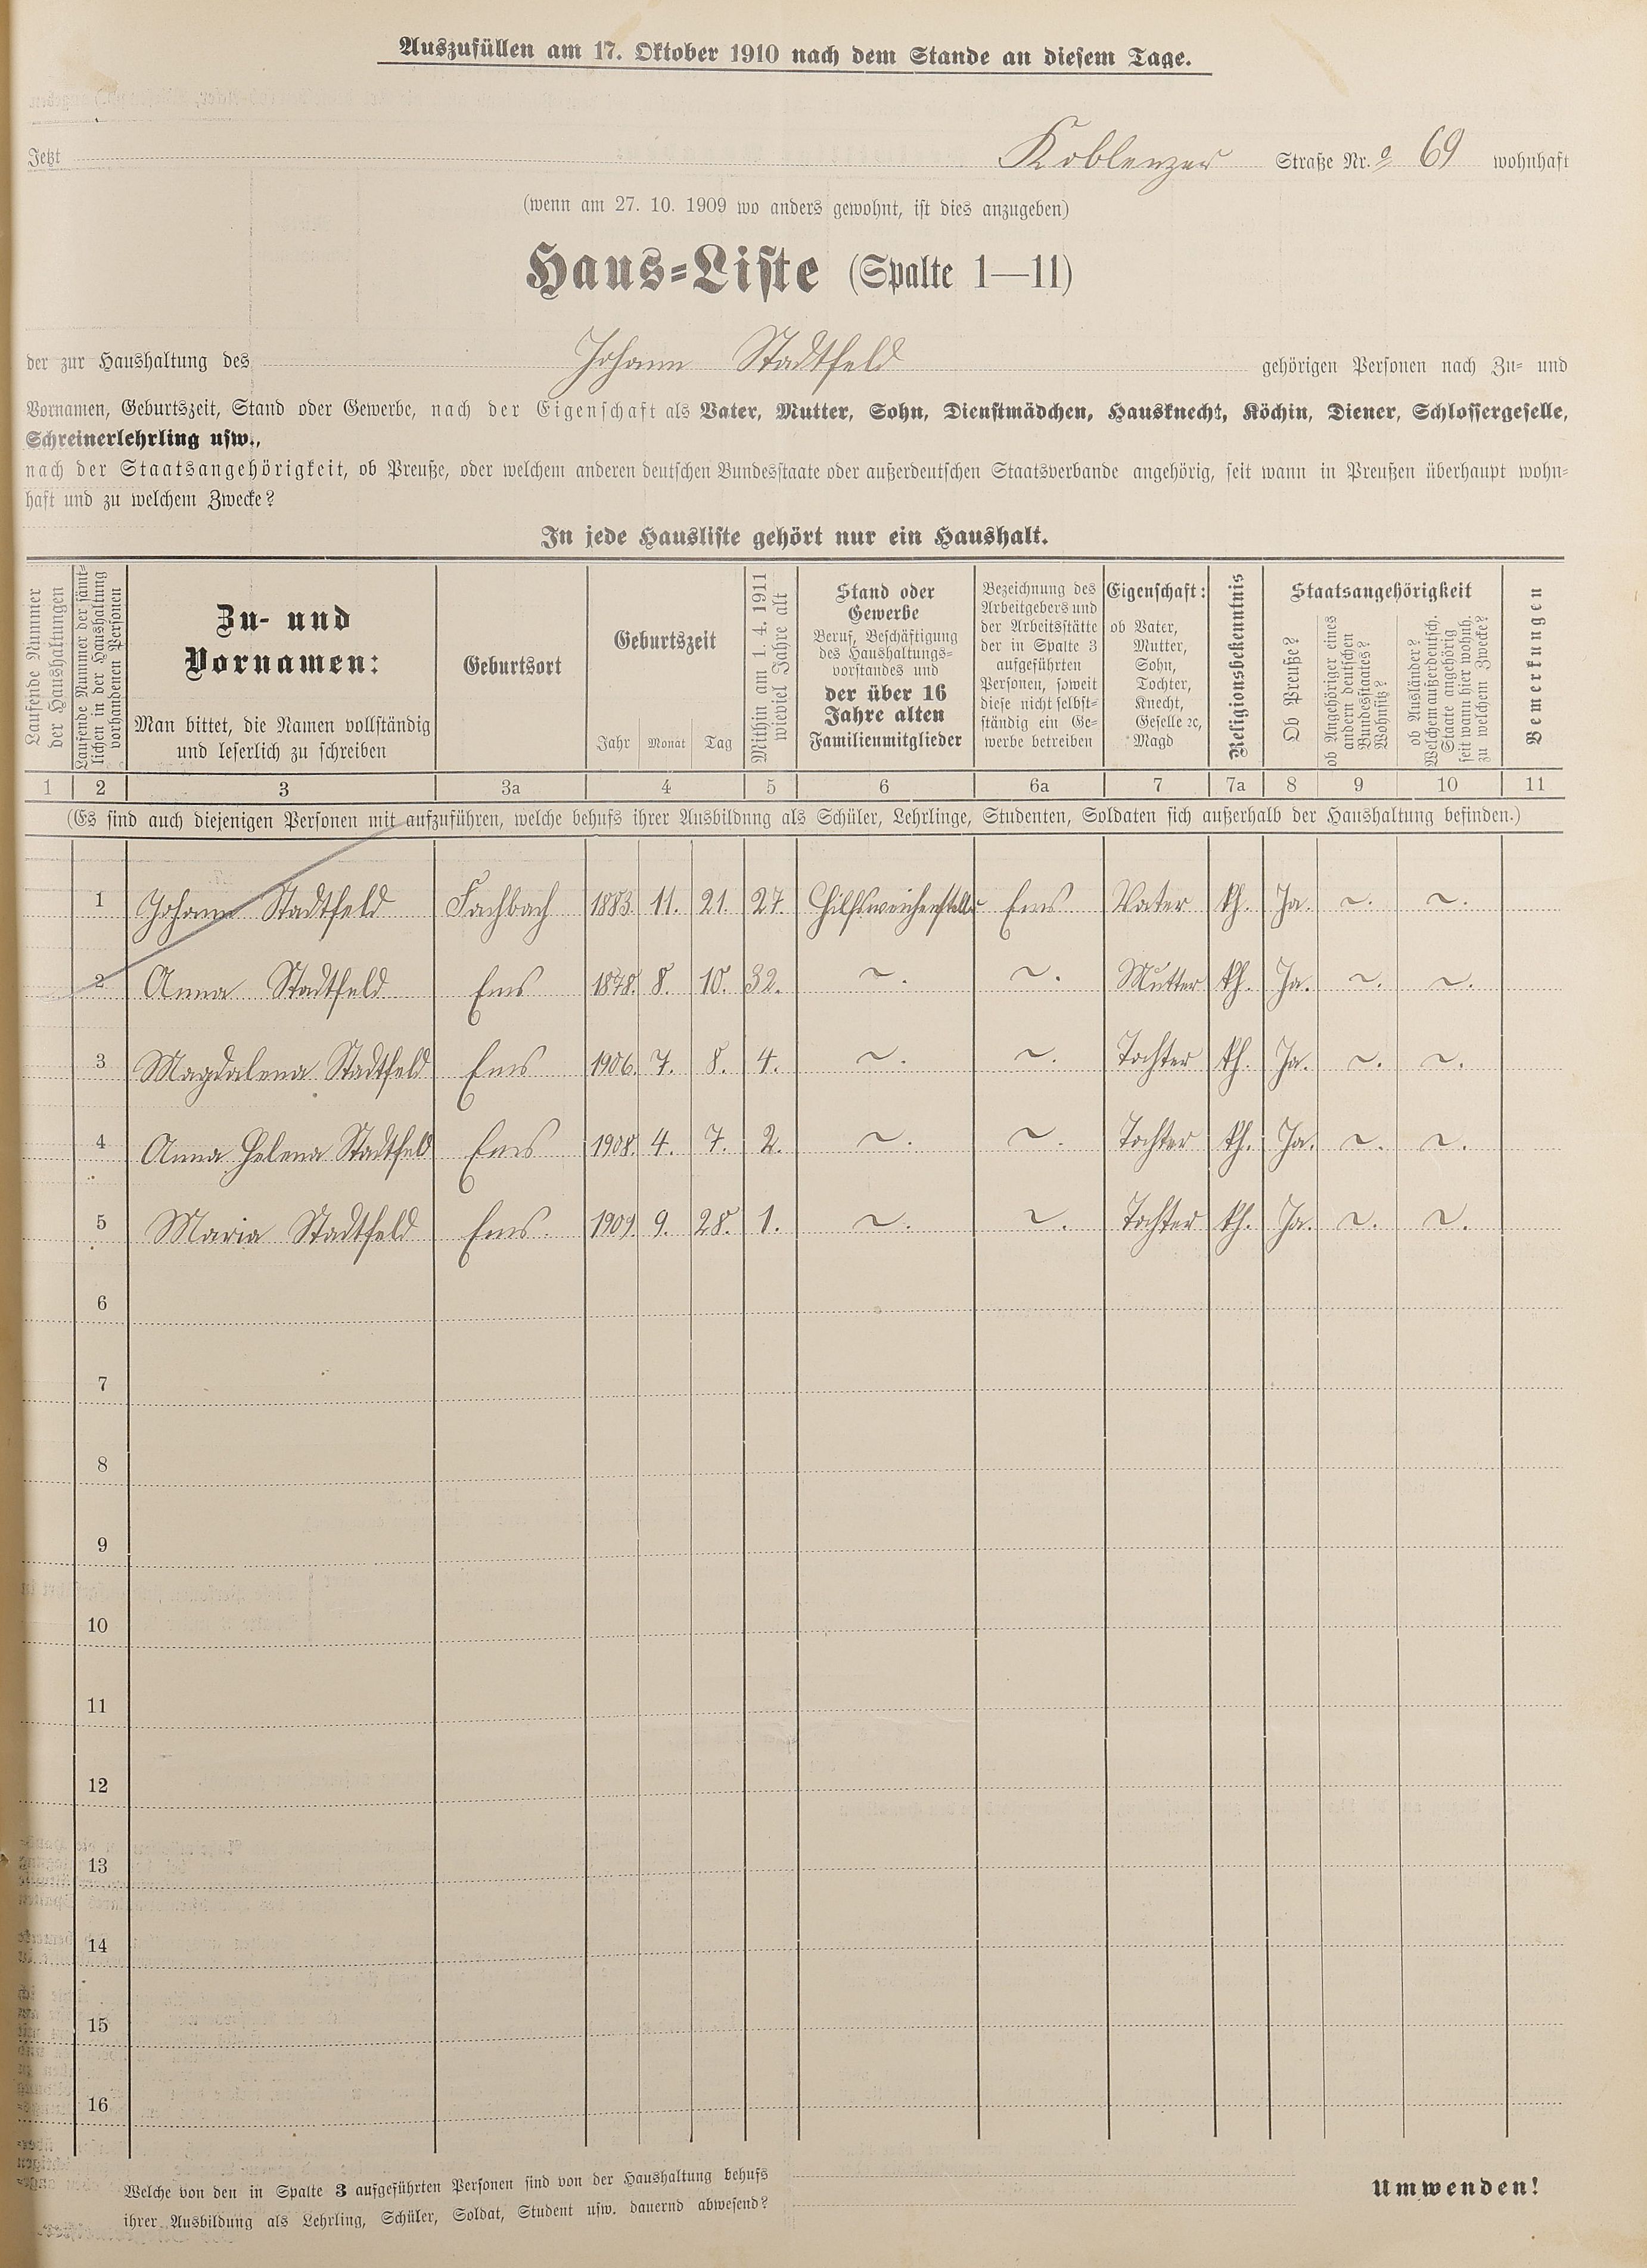 Auszufüllen am 17. Oktober 1910 nach dem Stande an diesem Tage.
Jetzt Koblenzer Straße Nr. 69 wohnhaft
(wenn am 27. 10. 1909 wo anders gewohnt, ist dies anzugeben)
Haus-Liste (Spalte 1—11)
der zur Haushaltung des Johann Stadtfeld gehörigen Personen nach Zu- und
Vornamen, Geburtszeit, Stand oder Gewerbe, nach der Eigenschaft als Vater, Mutter, Sohn, Dienstmädchen, Hausknecht, Köchin, Diener, Schlossergeselle,
Schreinerlehrling usw.,
nach der Staatsangehörigkeit, ob Preuße, oder welchem anderen deutschen Bundesstaate oder außerdeutschen Staatsverbande angehörig, seit wann in Preußen überhaupt wohn-
haft und zu welchem Zwecke?
In jede Hausliste gehört nur ein Haushalt.
Laufende Nummer
der Haushaltungen
Laufende Nummer der sämt-
lichen in der Haushaltung
vorhandenen Personen
Zu- und
Vornamen:
Man bittet, die Namen vollständig
und leserlich zu schreiben
Geburtsort
Geburtszeit
Jahr Monat Tag
Mithin am 1. 4. 1911
wieviel Jahre alt
Stand oder
Gewerbe
Beruf, Beschäftigung
des Haushaltungs-
vorstandes und
der über 16
Jahre alten
Familienmitglieder
Bezeichnung des
Arbeitgebers und
der Arbeitsstätte
der in Spalte 3
aufgeführten
Personen, soweit
diese nicht selbst-
ständig ein Ge-
werbe betreiben
Eigenschaft:
ob Vater,
Mutter,
Sohn,
Tochter,
Knecht,
Geselle ꝛc,
Magd
Religionsbekenntnis
Staatsangehörigkeit
Ob Preuße?
ob Angehöriger eines
andern deutschen
Bundesstaates?
Wohnsitz?
ob Ausländer?
Welchem außerdeutsch.
Staate angehörig
seit wann hier wohnh.
zu welchem Zwecke?
Bemerkungen
1 2 3 3a 4 5 6 6a 7 7a 8 9 10 11
(Es sind auch diejenigen Personen mit aufzuführen, welche behufs ihrer Ausbildung als Schüler, Lehrlinge, Studenten, Soldaten sich außerhalb der Haushaltung befinden.)
1 Johann Stadtfeld Fachbach 1883. 11. 21. 27. Hilfsweichensteller Ems Vater kh. Ja. ~. ~.
2 Anna Stadtfeld Ems 1878. 8. 10. 32. ~. ~. Mutter kh. Ja. ~. ~.
3 Magdalena Stadtfeld Ems 1906. 7. 8. 4. ~. ~. Tochter kh. Ja. ~. ~.
4 Anna Helena Stadtfeld Ems 1908. 4. 7. 2. ~. ~. Tochter kh. Ja. ~. ~.
5 Maria Stadtfeld Ems. 1909. 9. 28. 1. ~. ~. Tochter kh. Ja. ~. ~.
6
7
8
9
10
11
12
13
14
15
16
Welche von den in Spalte 3 aufgeführten Personen sind von der Haushaltung behufs
ihrer Ausbildung als Lehrling, Schüler, Soldat, Student usw. dauernd abwesend?
Umwenden!